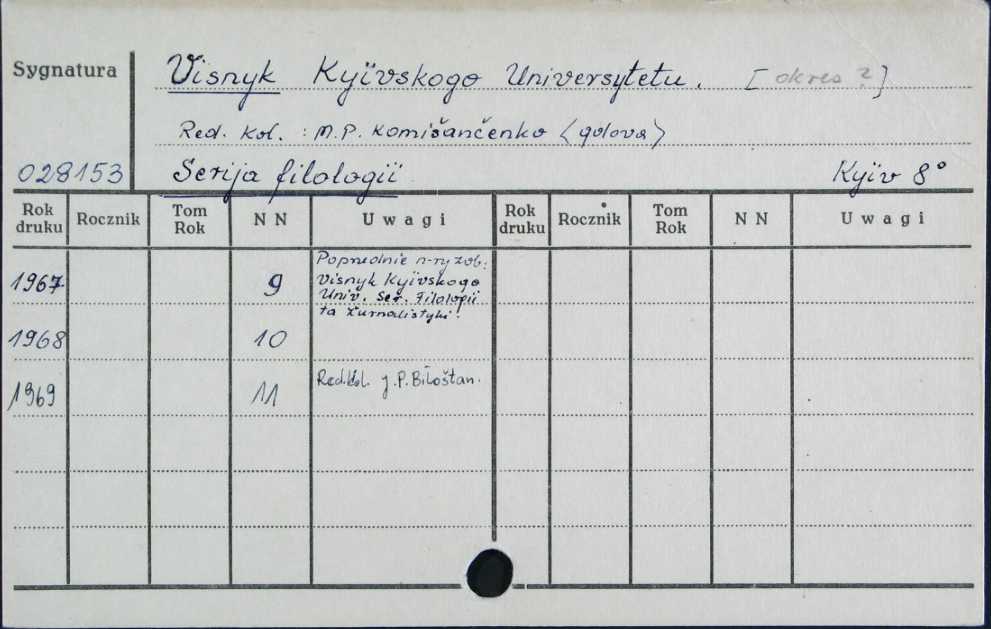 Sygnatura
Visnyk Kyïvskogo Universytetu. [okres ?]
Red. kol. : M.P. Komišančenko (golova)
028153 Serija filologiï Kyïv 8°
Rok druku Rocznik Tom Rok N N Uwagi Rok druku Rocznik Tom Rok N N Uwagi
Poprzednie n-ry zob:
1967 9 Visnyk Kyïvskogo
Univ. Ser. Filologiï
ta žurnalistyki.
1968 10
1969 11 Red. kol. J.P. Biloštan.